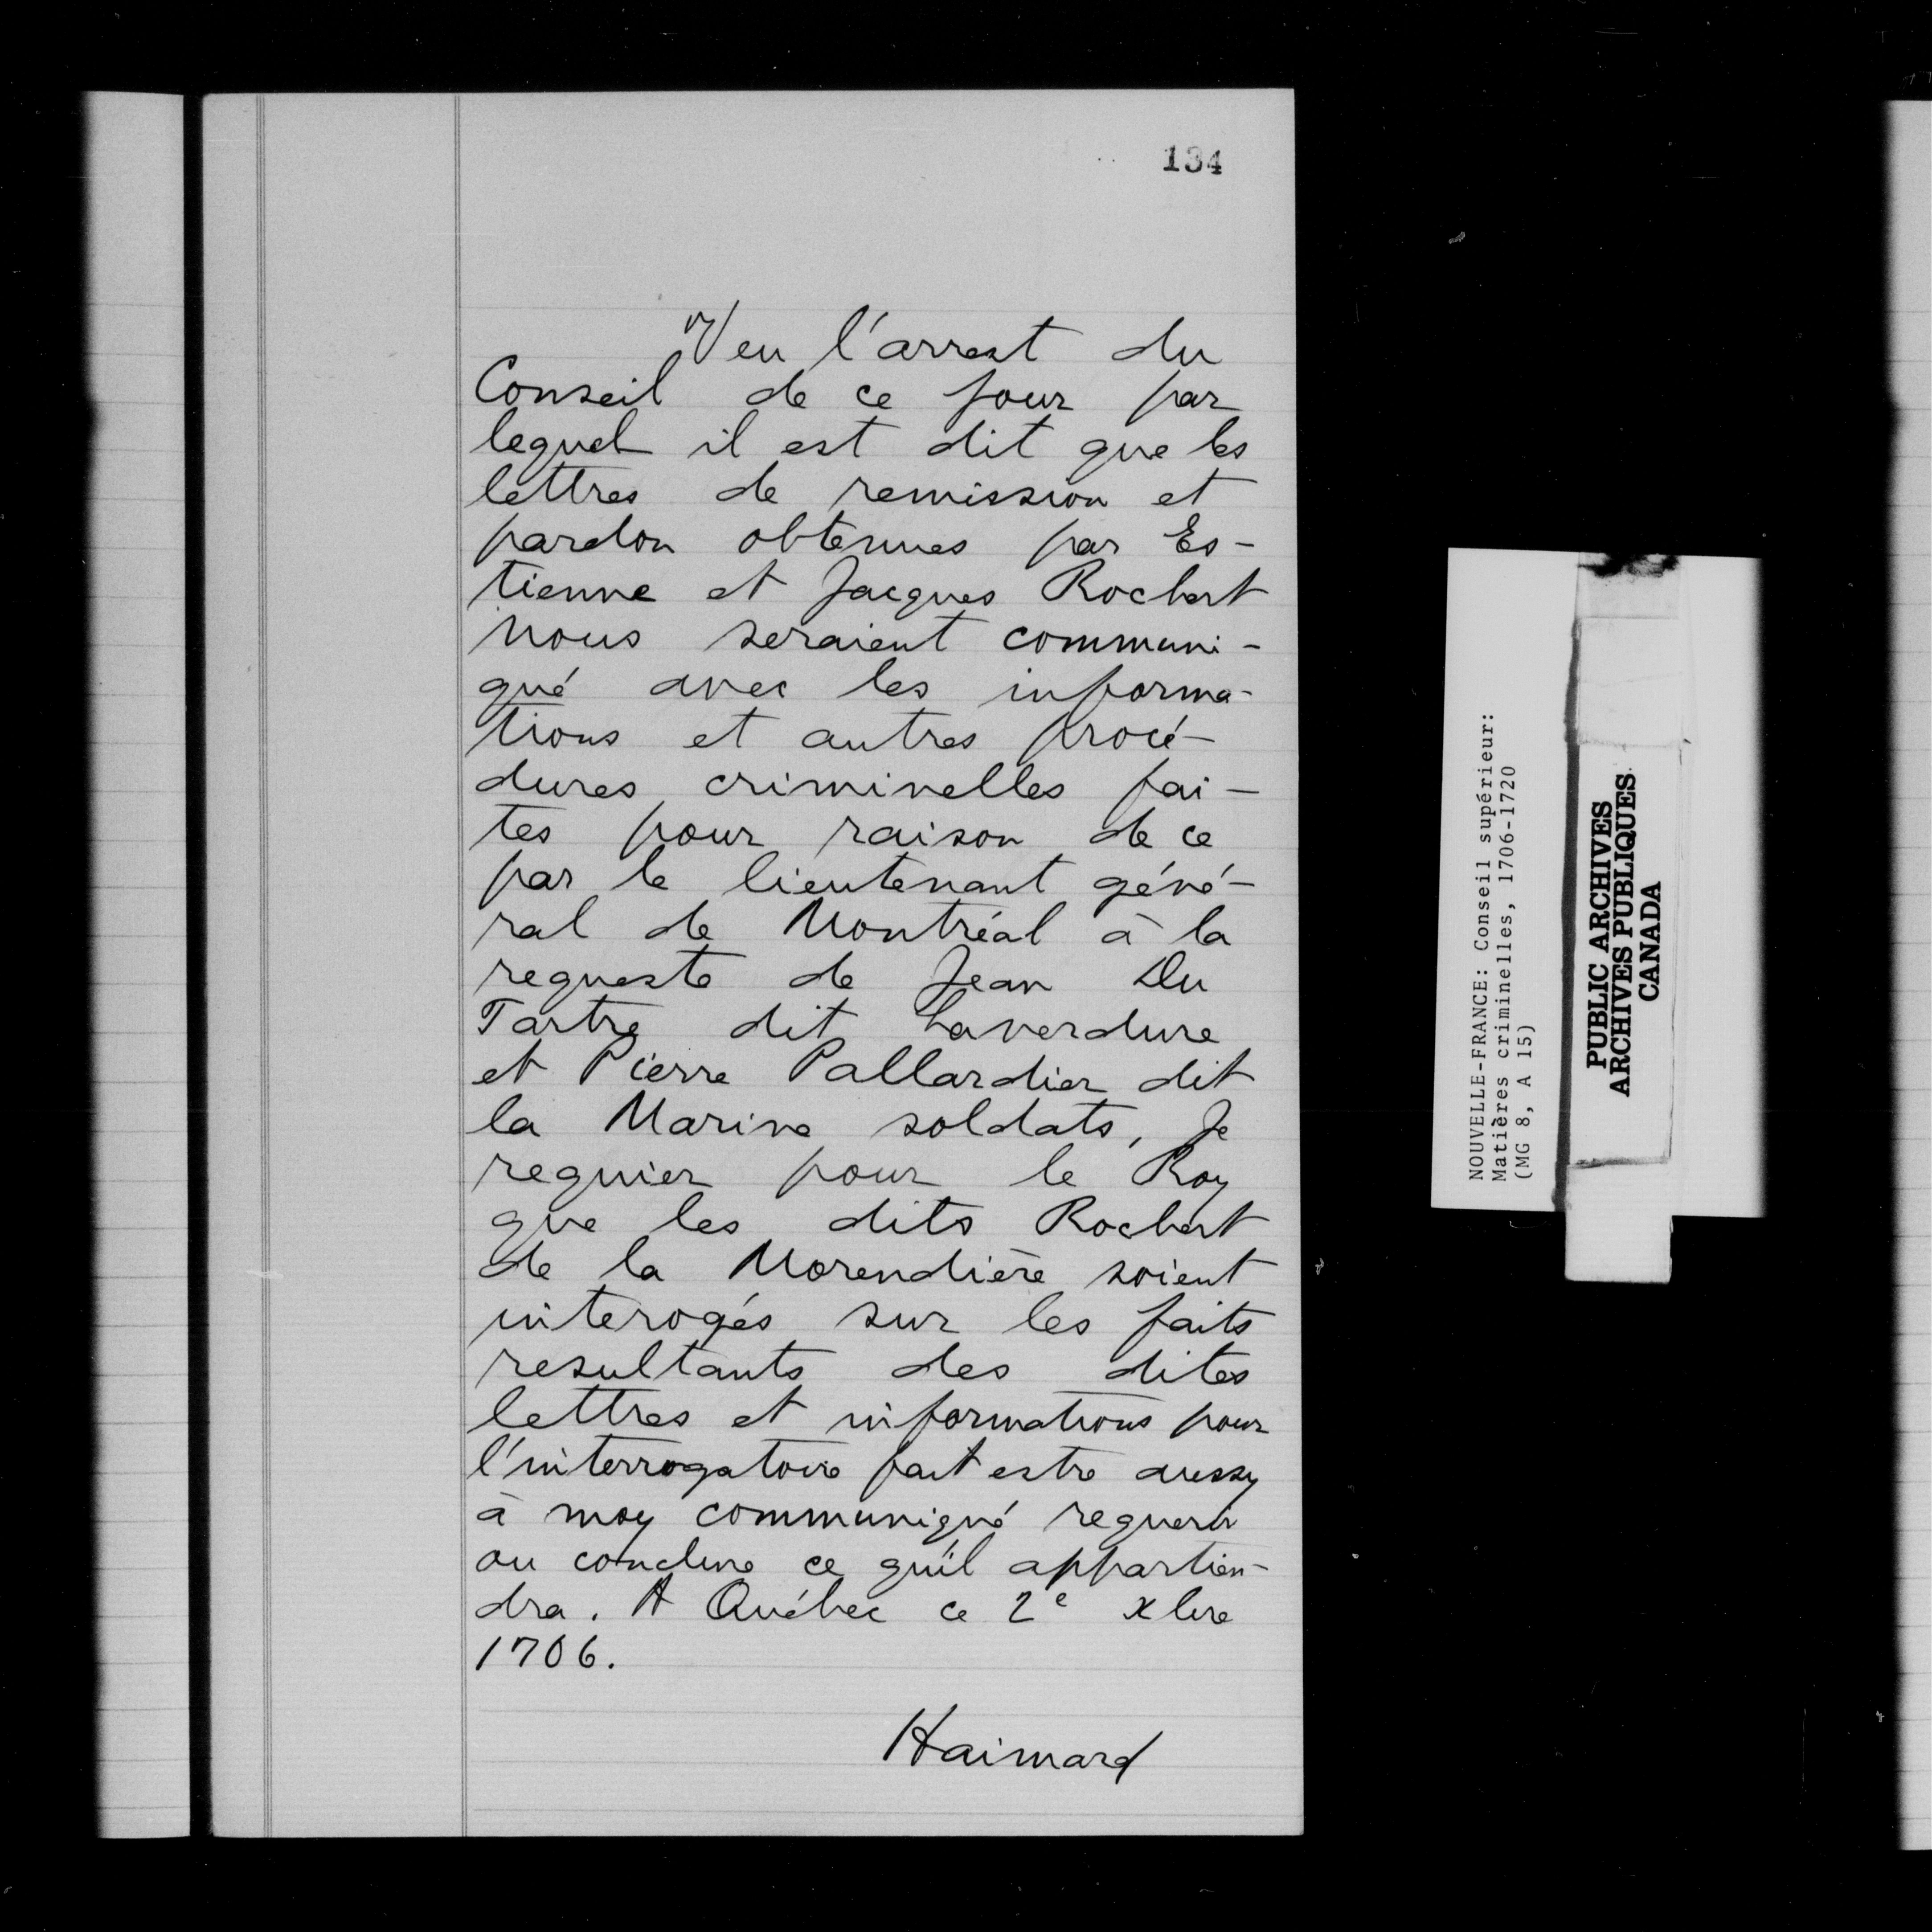 134
Veu l'arrest du
Conseil de ce jour par
lequel il est dit que les
lettres de remission et
pardon obtenues par Es-
tienne et Jacques Rochert
nous seraient communi-
qué avec les informa-
tions et autres procé-
dures criminelles fai-
tes pour raison de ce
par le lieutenant géné-
ral de Montréal à la
requeste de Jean Du
Tartre dit Laverdure
et Pierre Pallardier dit
la Marine soldats, Je
requier pour le Roy
que les dits Rochert
de la Morendière soient
interogés sur les faits
resultants des dites
lettres et informations pour
l'interrogatoire fait estre aussy
à moy communiqué requerir
ou conclure ce qu'il appartien-
dra. A Québec ce 2e Xbre
1706.
Haimard
NOUVELLE-FRANCE: Conseil supérieur:
Matières criminelles, 1706-1720
(MG 8, A 15)
PUBLIC ARCHIVES
ARCHIVES PUBLIQUES
CANADA